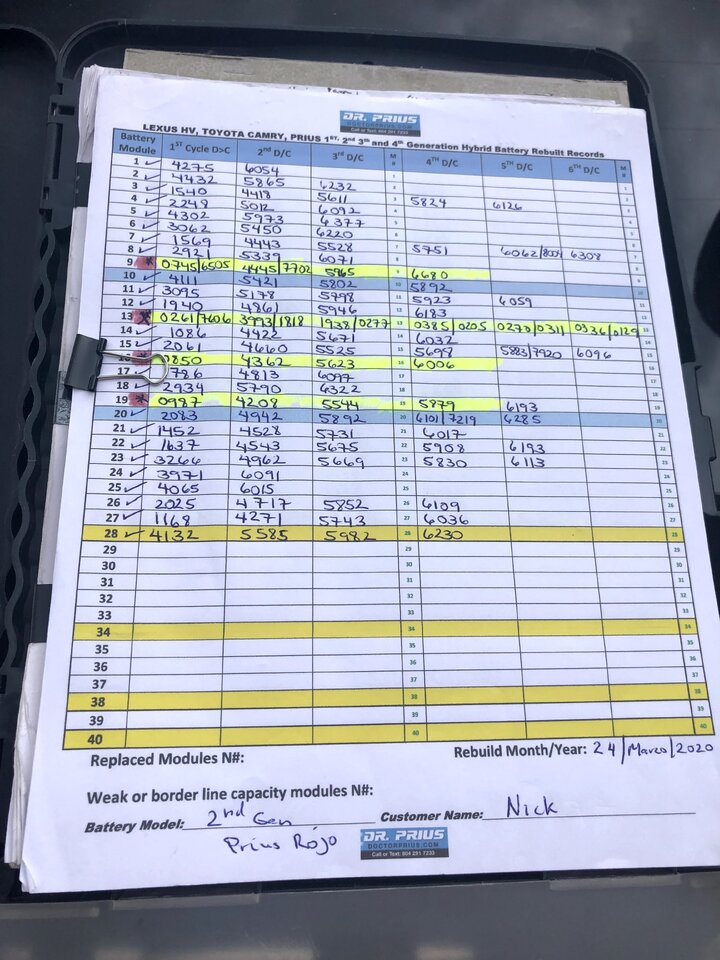 DR. PRIUS
DOCTORPRIUS.COM
Call or Text: 804 291 7233
LEXUS HV, TOYOTA CAMRY, PRIUS 1ST, 2nd 3th and 4th Generation Hybrid Battery Rebuilt Records
Battery Module 1ST Cycle D>C 2nd D/C 3rd D/C M # 4TH D/C 5TH D/C 6TH D/C M #
1 ✓ 4275 6054 1 1
2 ✓ 4432 5865 6232 2 2
3 ✓ 1540 4418 5611 3 5824 6126 3
4 ✓ 2249 5012 6092 4 4
5 ✓ 4302 5973 6377 5 5
6 ✓ 3062 5450 6220 6 6
7 ✓ 1569 4443 5528 7 5751 6062/8004 6308 7
8 ✓ 2921 5339 6071 8 8
9 * 0745/6505 4445/7702 5965 9 6680 9
10 ✓ 4111 5421 5802 10 5892 10
11 ✓ 3095 5178 5798 11 5923 6059 11
12 ✓ 1940 4861 5946 12 6183 12
13 * 0261/7606 3993/1818 1938/0277 13 0385/0205 0270/0311 0336/0129 13
14 ✓ 1086 4422 5671 14 6032 14
15 ✓ 2061 4660 5525 15 5698 5883/7920 6096 15
850 4362 5623 16 6006 16
17 786 4813 6097 17 17
18 ✓ 2934 5790 6322 18 18
19 * 0987 4208 5544 19 5879 6193 19
20 ✓ 2083 4942 5892 20 6101/7219 6285 20
21 ✓ 1452 4528 5731 21 6017 21
22 ✓ 1637 4543 5675 22 5908 6193 22
23 ✓ 3266 4962 5669 23 5830 6113 23
24 ✓ 3971 6091 24 24
25 ✓ 4065 6015 25 25
26 ✓ 2025 4717 5852 26 6109 26
27 ✓ 1168 4271 5743 27 6036 27
28 ✓ 4132 5585 5982 28 6230 28
29 29 29
30 30 30
31 31 31
32 32 32
33 33 33
34 34 34
35 35 35
36 36 36
37 37 37
38 38 38
39 39 39
40 40 40
Replaced Modules N#: Rebuild Month/Year: 24/Marzo/2020
Weak or border line capacity modules N#:
Battery Model: 2nd Gen Customer Name: Nick
Prius Rojo
DR. PRIUS
DOCTORPRIUS.COM
Call or Text: 804 291 7233